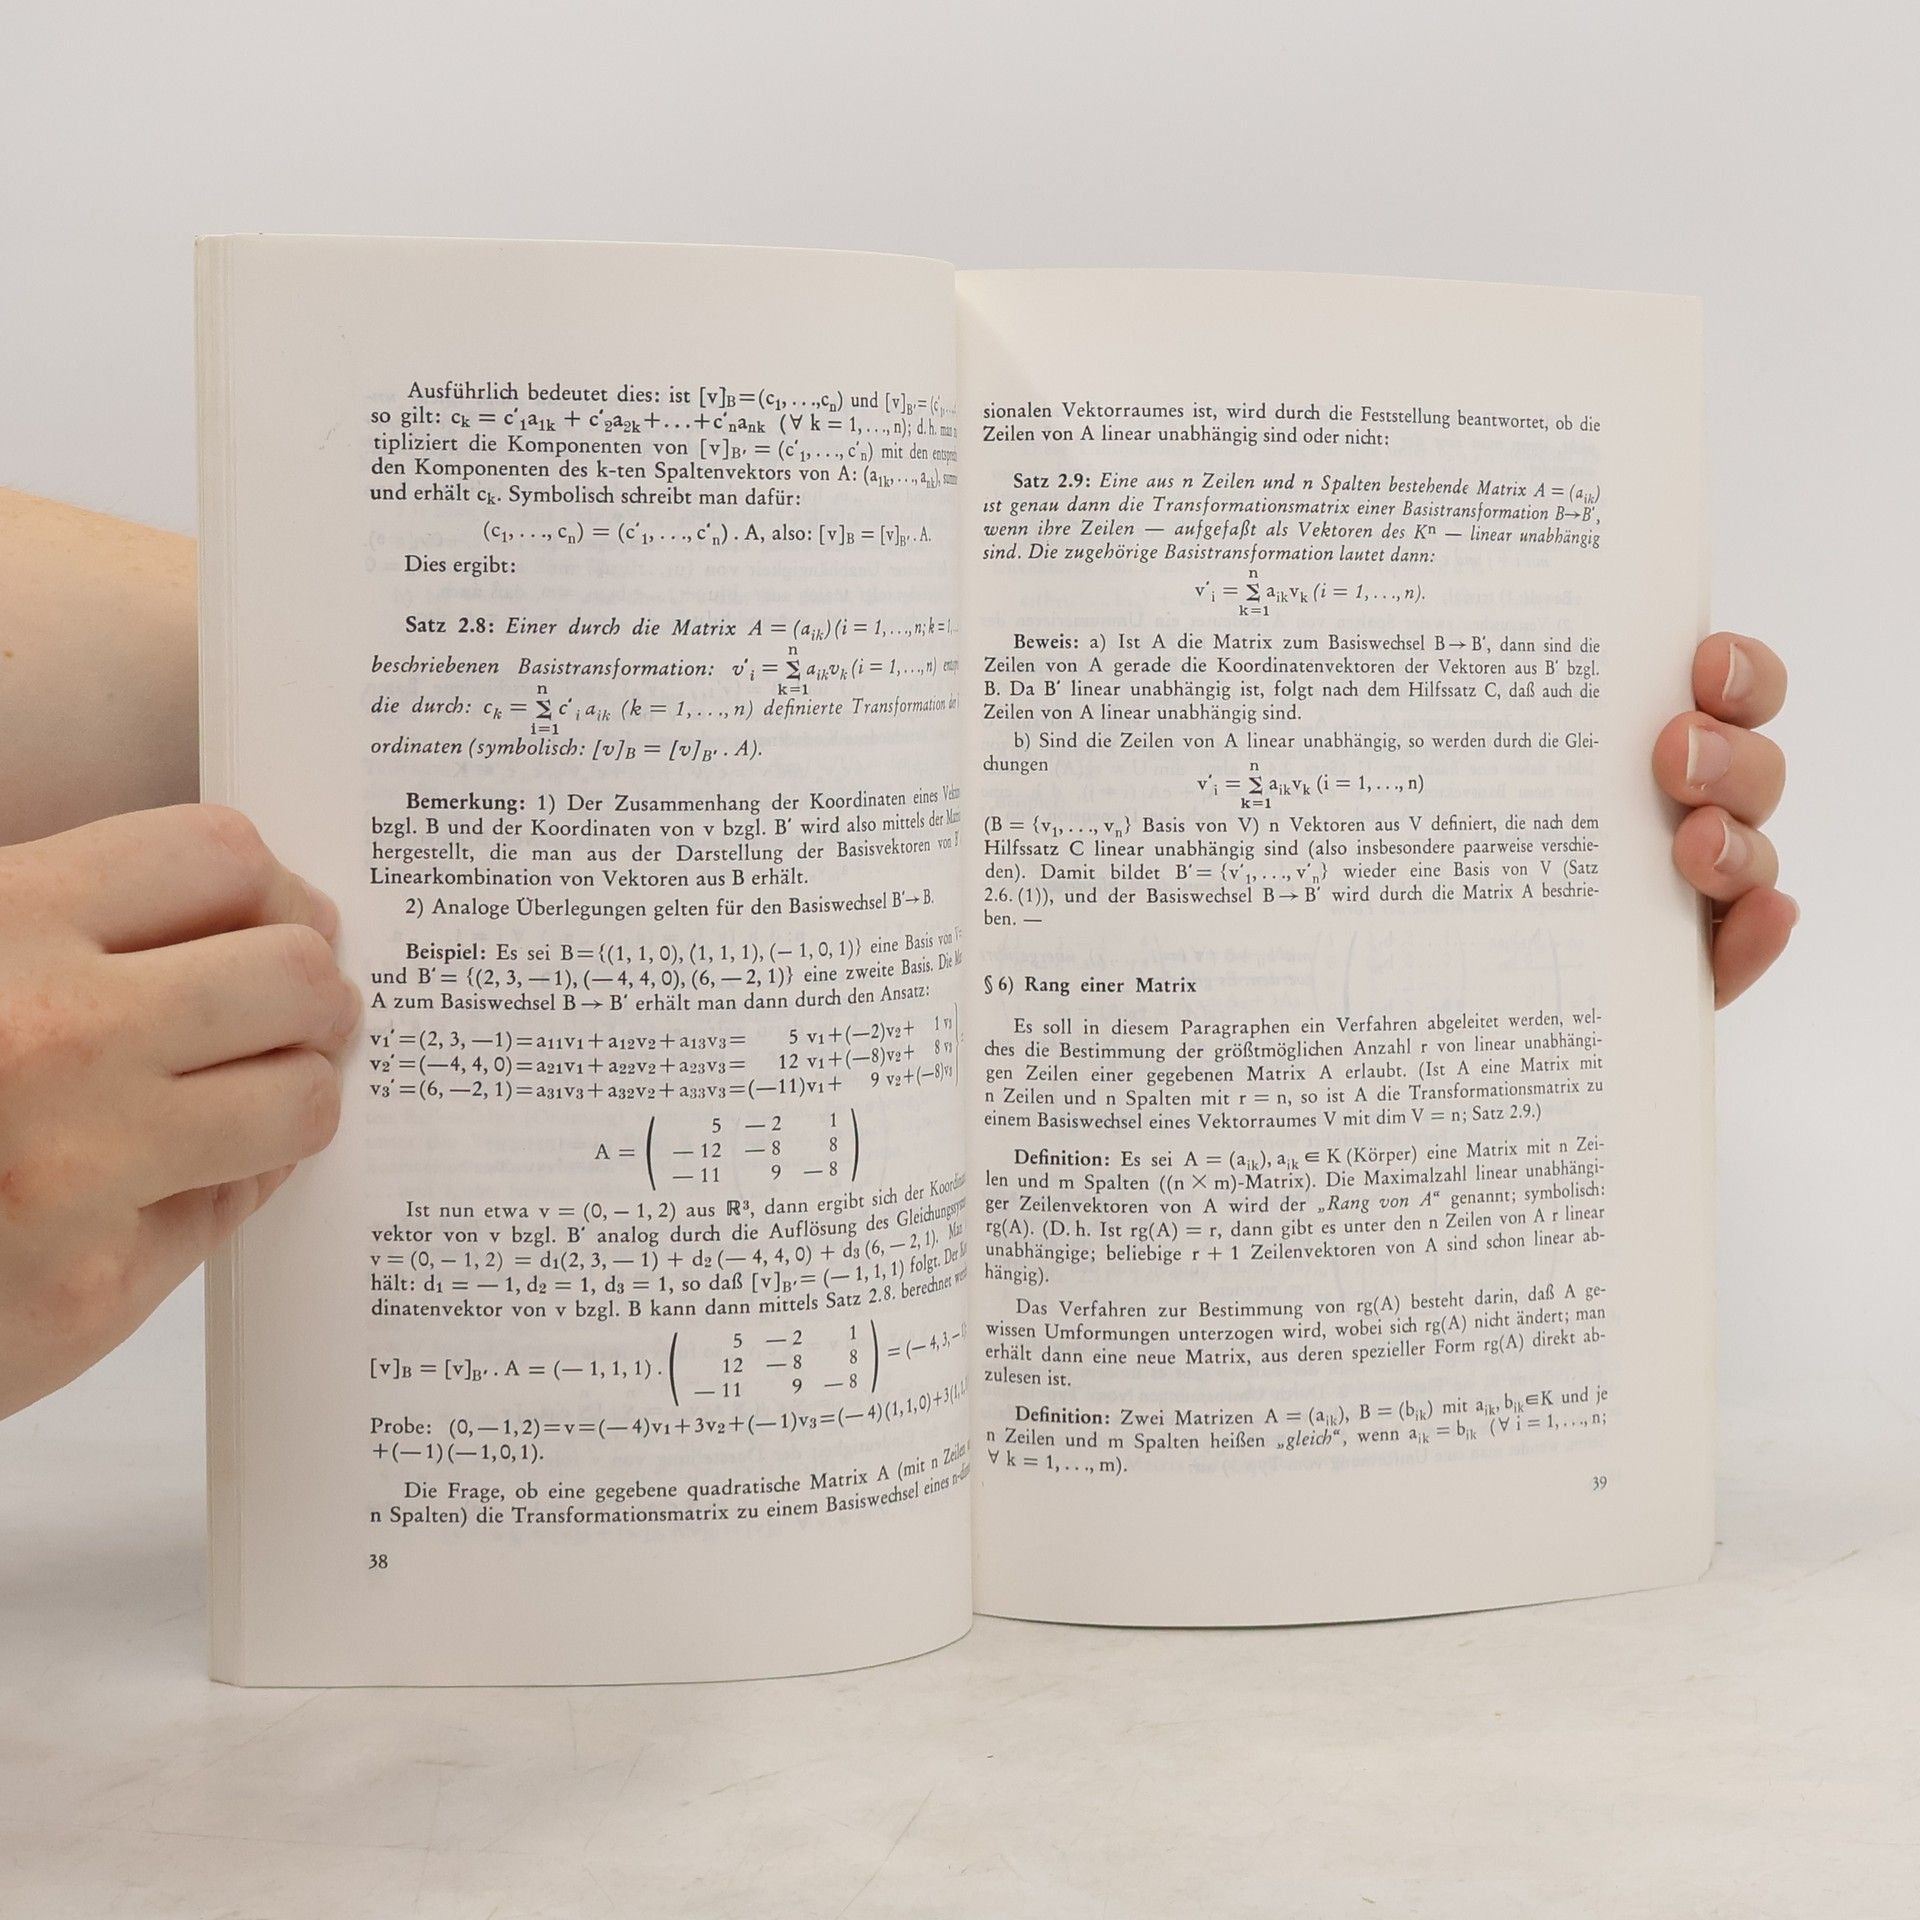 Ausführlich bedeutet dies: ist [v]B=(c1,...,cn) und [v]B'=(c'1,...
so gilt: ck = c'1a1k + c'2a2k+...+c'nank (∀ k = 1,...,n); d. h. man
tipliziert die Komponenten von [v]B' = (c'1,..., c'n) mit den
den Komponenten des k-ten Spaltenvektors von A: (a1k,..., ank),
und erhält ck. Symbolisch schreibt man dafür:
(c1,..., cn) = (c'1,..., c'n) . A, also: [v]B = [v]B' . A.
Dies ergibt:
Satz 2.8: Einer durch die Matrix A = (aik)(i = 1,...,n; k=1,...
beschriebenen Basistransformation: v'i = n Σ k=1 aikvk (i = 1,...,n)
die durch: ck = n Σ i=1 c'i aik (k = 1,...,n) definierte Transformation
ordinaten (symbolisch: [v]B = [v]B' . A).
Bemerkung: 1) Der Zusammenhang der Koordinaten eines
bzgl. B und der Koordinaten von v bzgl. B' wird also mittels der
hergestellt, die man aus der Darstellung der Basisvektoren von
Linearkombination von Vektoren aus B erhält.
2) Analoge Überlegungen gelten für den Basiswechsel B'→B.
Beispiel: Es sei B={(1, 1, 0), (1, 1, 1), (— 1, 0, 1)} eine Basis von
und B' = {(2, 3, —1), (—4, 4, 0), (6, —2, 1)} eine zweite Basis. Die
A zum Basiswechsel B → B' erhält man dann durch den Ansatz:
v1'=(2, 3, —1)=a11v1+a12v2+a13v3= 5 v1+(—2)v2+ 1 v3
v2'=(—4, 4, 0)=a21v1+a22v2+a23v3= 12 v1+(—8)v2+ 8 v3
v3'=(6, —2, 1)=a31v3+a32v2+a33v3=(—11)v1+ 9 v2+(—8)v3
A = ( 5 — 2 1
— 12 — 8 8
— 11 9 — 8 )
Ist nun etwa v = (0, — 1, 2) aus ℝ³, dann ergibt sich der
vektor von v bzgl. B' analog durch die Auflösung des
v = (0, — 1, 2) = d1(2, 3, — 1) + d2 (— 4, 4, 0) + d3 (6, — 2, 1). Man
hält: d1 = — 1, d2 = 1, d3 = 1, so daß [v]B' = (— 1, 1, 1) folgt. Der
dinatenvektor von v bzgl. B kann dann mittels Satz 2.8. berechnet
[v]B = [v]B' . A = (— 1, 1, 1) . ( 5 — 2 1
12 — 8 8
— 11 9 — 8 ) = (— 4, 3, —
Probe: (0, — 1,2)=v=(— 4)v1+3v2+(— 1)v3=(— 4)(1,1,0)+3(1,1,
+(— 1)(— 1,0,1).
Die Frage, ob eine gegebene quadratische Matrix A (mit n Zeilen
n Spalten) die Transformationsmatrix zu einem Basiswechsel eines
38
sionalen Vektorraumes ist, wird durch die Feststellung beantwortet, ob die
Zeilen von A linear unabhängig sind oder nicht:
Satz 2.9: Eine aus n Zeilen und n Spalten bestehende Matrix A = (aik)
ist genau dann die Transformationsmatrix einer Basistransformation B→B',
wenn ihre Zeilen — aufgefaßt als Vektoren des Kⁿ — linear unabhängig
sind. Die zugehörige Basistransformation lautet dann:
v'i = n Σ k=1 aikvk (i = 1,...,n).
Beweis: a) Ist A die Matrix zum Basiswechsel B→B', dann sind die
Zeilen von A gerade die Koordinatenvektoren der Vektoren aus B' bzgl.
B. Da B' linear unabhängig ist, folgt nach dem Hilfssatz C, daß auch die
Zeilen von A linear unabhängig sind.
b) Sind die Zeilen von A linear unabhängig, so werden durch die Glei-
chungen
v'i = n Σ k=1 aikvk (i = 1,...,n)
(B = {v1,..., vn} Basis von V) n Vektoren aus V definiert, die nach dem
Hilfssatz C linear unabhängig sind (also insbesondere paarweise verschie-
den). Damit bildet B' = {v'1,..., v'n} wieder eine Basis von V (Satz
2.6. (1)), und der Basiswechsel B→B' wird durch die Matrix A beschrie-
ben. —
§ 6) Rang einer Matrix
Es soll in diesem Paragraphen ein Verfahren abgeleitet werden, wel-
ches die Bestimmung der größtmöglichen Anzahl r von linear unabhängi-
gen Zeilen einer gegebenen Matrix A erlaubt. (Ist A eine Matrix mit
n Zeilen und n Spalten mit r = n, so ist A die Transformationsmatrix zu
einem Basiswechsel eines Vektorraumes V mit dim V = n; Satz 2.9.)
Definition: Es sei A = (aik), aik ∈ K (Körper) eine Matrix mit n Zei-
len und m Spalten ((n × m)-Matrix). Die Maximalzahl linear unabhängi-
ger Zeilenvektoren von A wird der „Rang von A“ genannt; symbolisch:
rg(A). (D. h. Ist rg(A) = r, dann gibt es unter den n Zeilen von A r linear
unabhängige; beliebige r + 1 Zeilenvektoren von A sind schon linear ab-
hängig).
Das Verfahren zur Bestimmung von rg(A) besteht darin, daß A ge-
wissen Umformungen unterzogen wird, wobei sich rg(A) nicht ändert; man
erhält dann eine neue Matrix, aus deren spezieller Form rg(A) direkt ab-
zulesen ist.
Definition: Zwei Matrizen A = (aik), B = (bik) mit aik, bik∈K und je
n Zeilen und m Spalten heißen „gleich“, wenn aik = bik (∀ i = 1,..., n;
∀ k = 1,..., m).
39